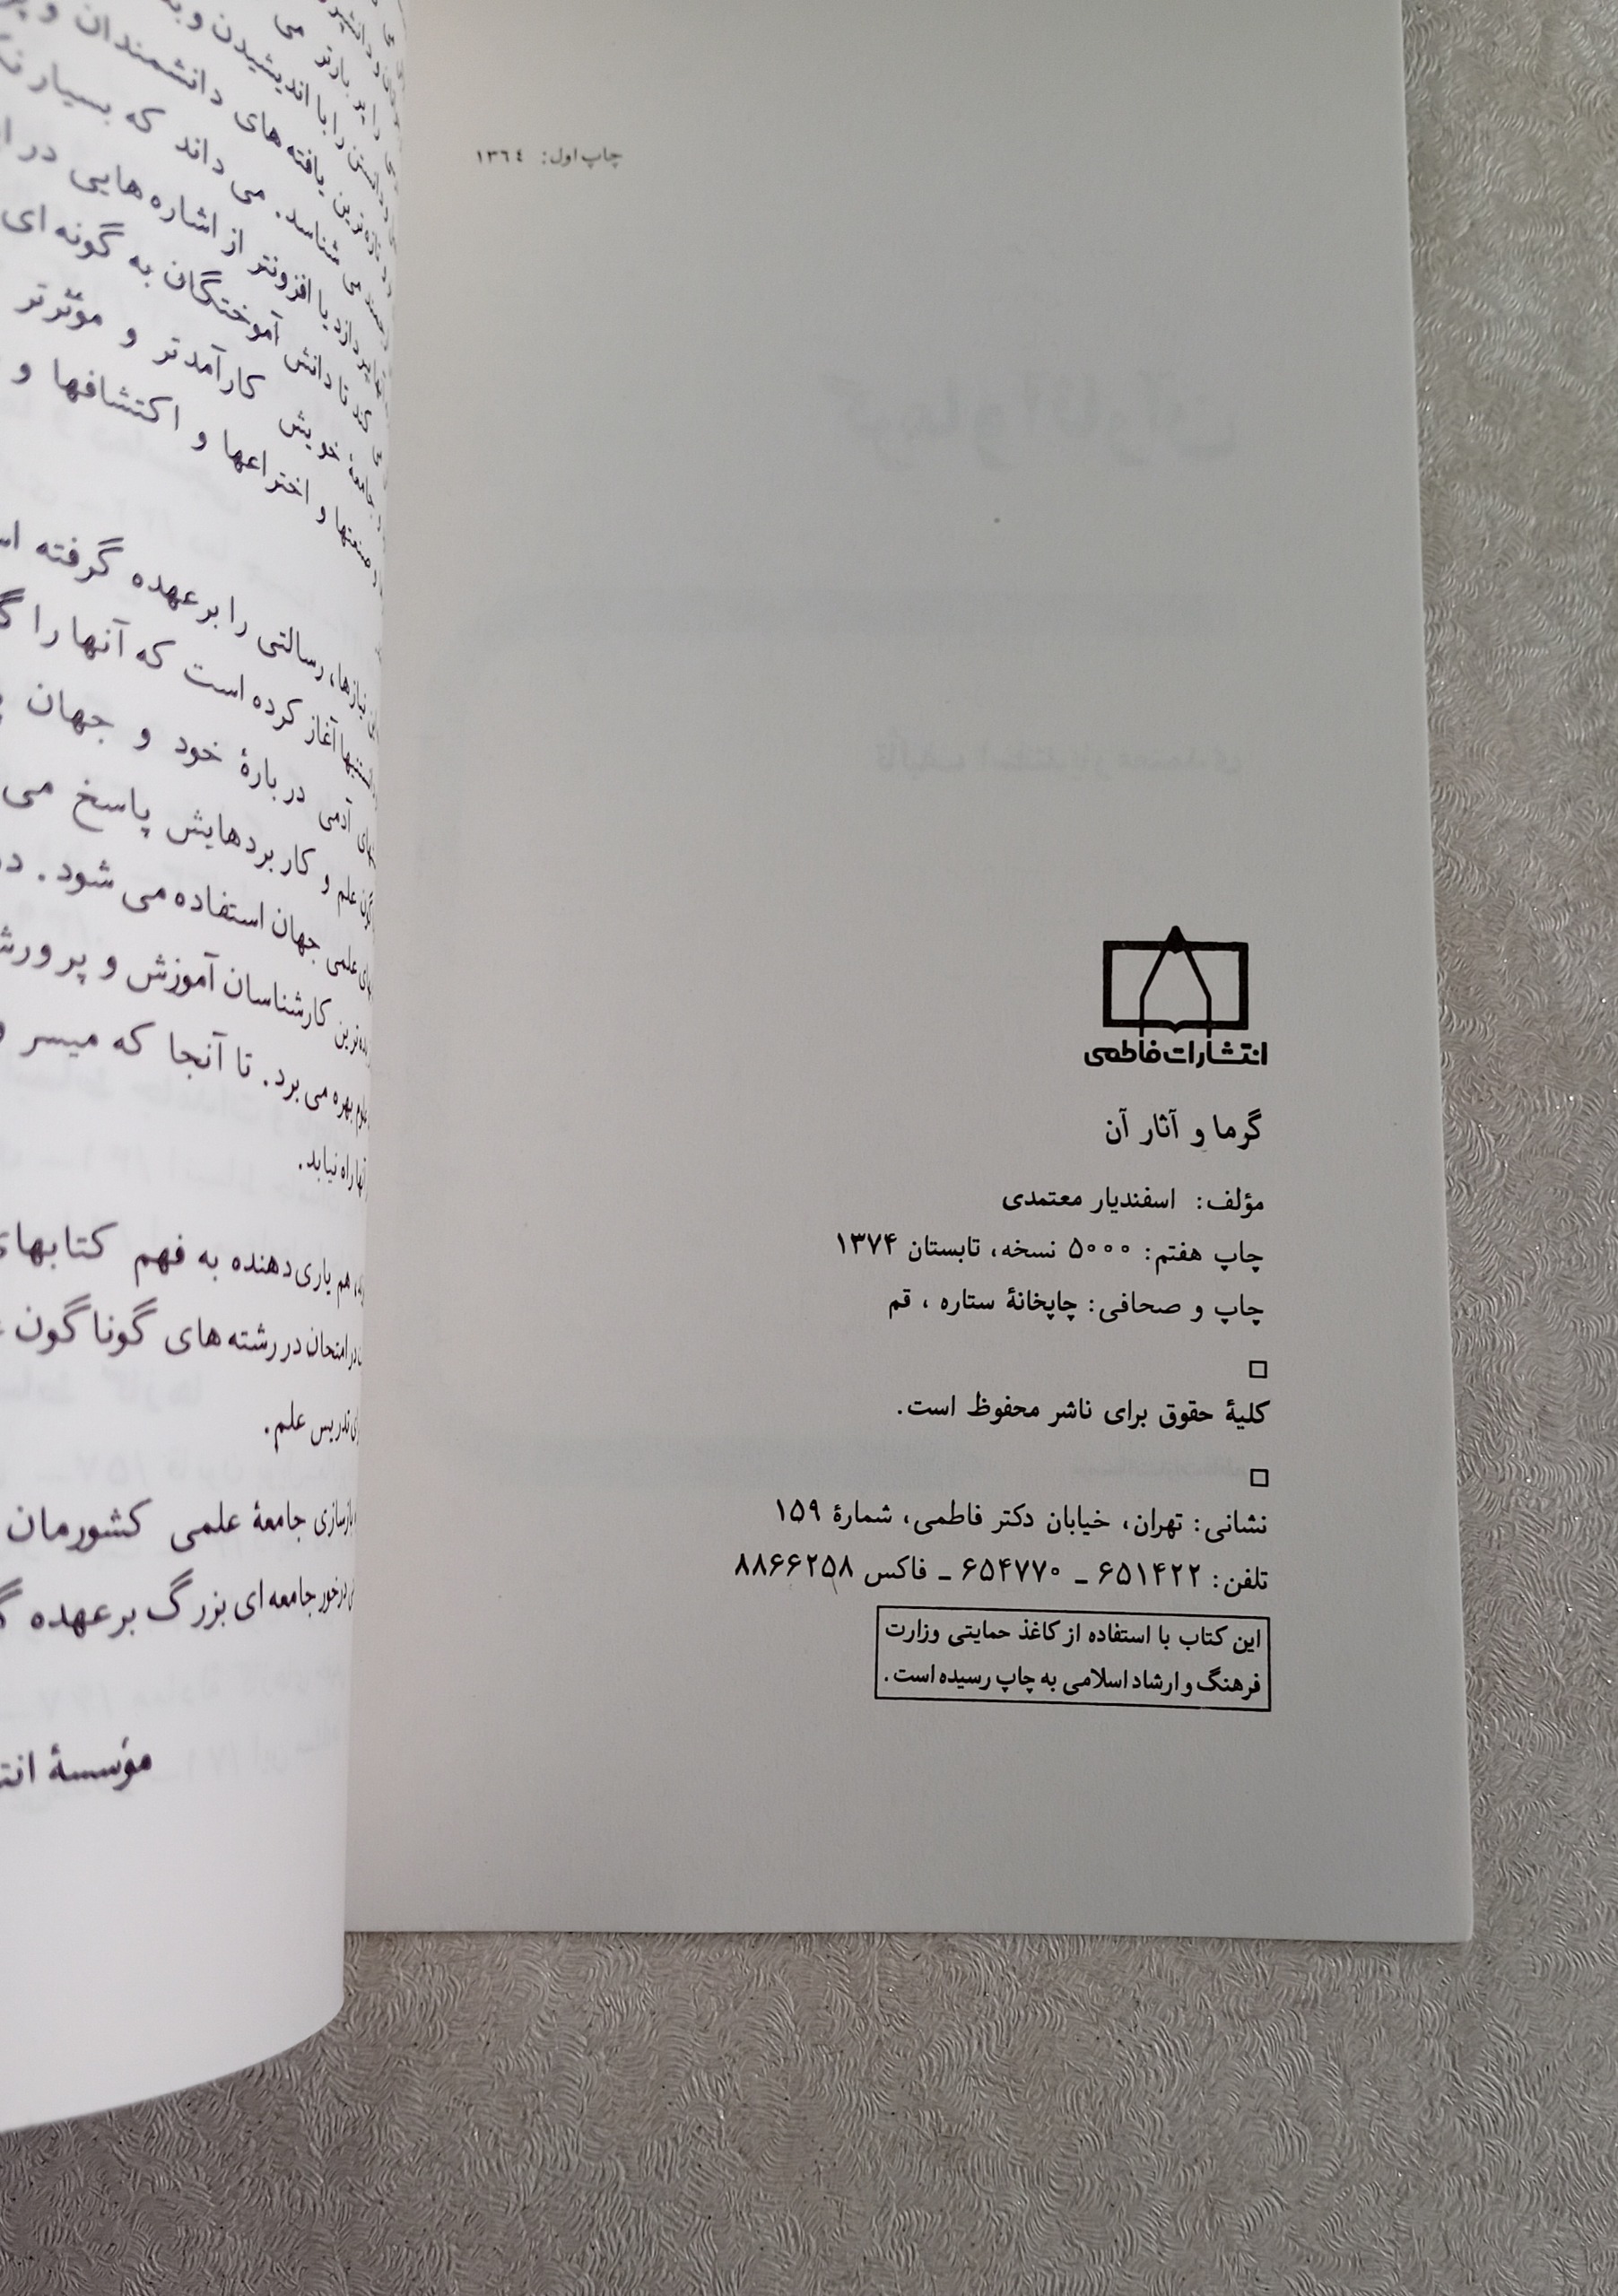 چاپ اول: ١٣٦٤
انتشارات فاطمی
گرما و آثار آن
مؤلف: اسفندیار معتمدی
چاپ هفتم: ۵۰۰۰ نسخه، تابستان ۱۳۷۴
چاپ و صحافی: چاپخانهٔ ستاره ، قم
کلیهٔ حقوق برای ناشر محفوظ است.
نشانی: تهران، خیابان دکتر فاطمی، شمارهٔ ۱۵۹
تلفن: ۶۵۱۴۲۲ ـ ۶۵۴۷۷۰ ـ فاکس ۸۸۶۶۲۵۸
این کتاب با استفاده از کاغذ حمایتی وزارت
فرهنگ و ارشاد اسلامی به چاپ رسیده است.
را با اندیشیدن
تازه ترین یافته های دانشمندان و
می شناسد. می داند که بسیار
یا افزونتر از اشاره هایی در
کند تا دانش آموختگان به گونه ای
جامعهٔ خویش کارآمدتر و مؤثرتر
صنعتها و اختراعها و اکتشافها و
نیازها، رسالتی را بر عهده گرفته
آغاز کرده است که آنها را
آدمی دربارهٔ خود و جهان
علم و کاربردهایش پاسخ می
علمی جهان استفاده می شود. در
کارشناسان آموزش و پرورش
بهره می برد. تا آنجا که میسر
آنها راه نیابد.
هم یاری دهنده به فهم کتابهای
در امتحان در رشته های گوناگون
تدریس علم.
بازسازی جامعهٔ علمی کشورمان
درخور جامعه ای بزرگ بر عهده
مؤسسهٔ